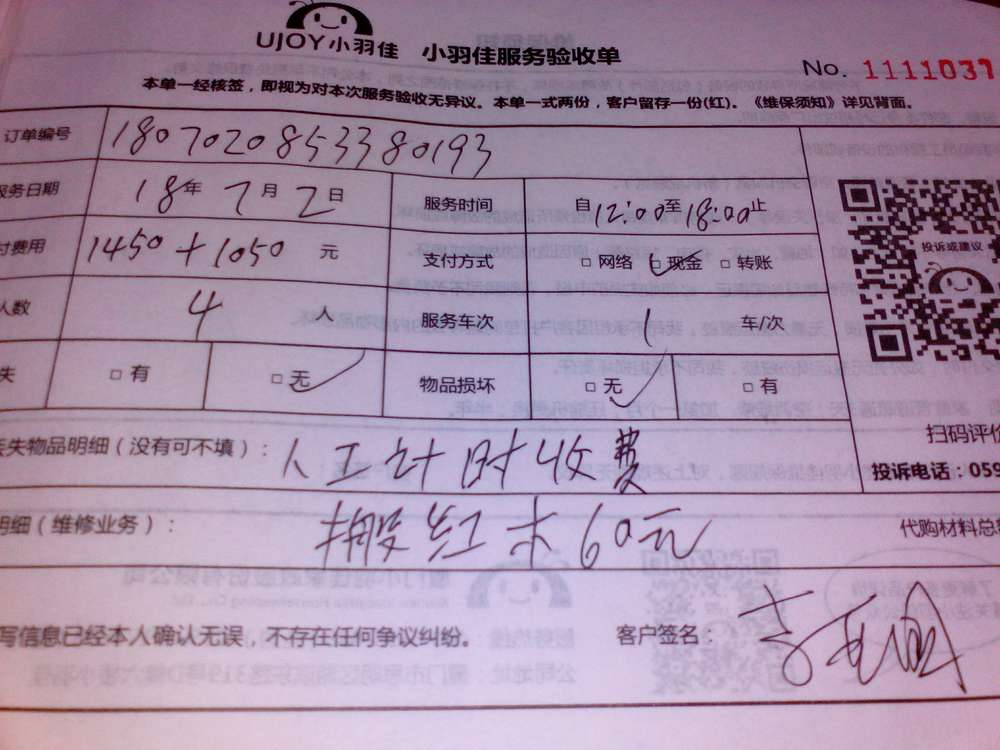 UJOY小羽佳 小羽佳服务验收单
No. 1111037
本单一经核签，即视为对本次服务验收无异议。本单一式两份，客户留存一份(红)。《维保须知》详见背面。
订单编号 1807020853380193
服务日期 18年7月2日 服务时间 自12:00至18:00止
付费用 1450+1050 元 支付方式 □网络 □现金 □转账
人数 4 人 服务车次 1 车/次
失 □有 □无 物品损坏 □无 □有
投诉或建议
扫码评价
丢失物品明细（没有可不填）：人工计时收费
投诉电话：059
明细（维修业务）：搬红木60元
代购材料总
写信息已经本人确认无误，不存在任何争议纠纷。 客户签名：